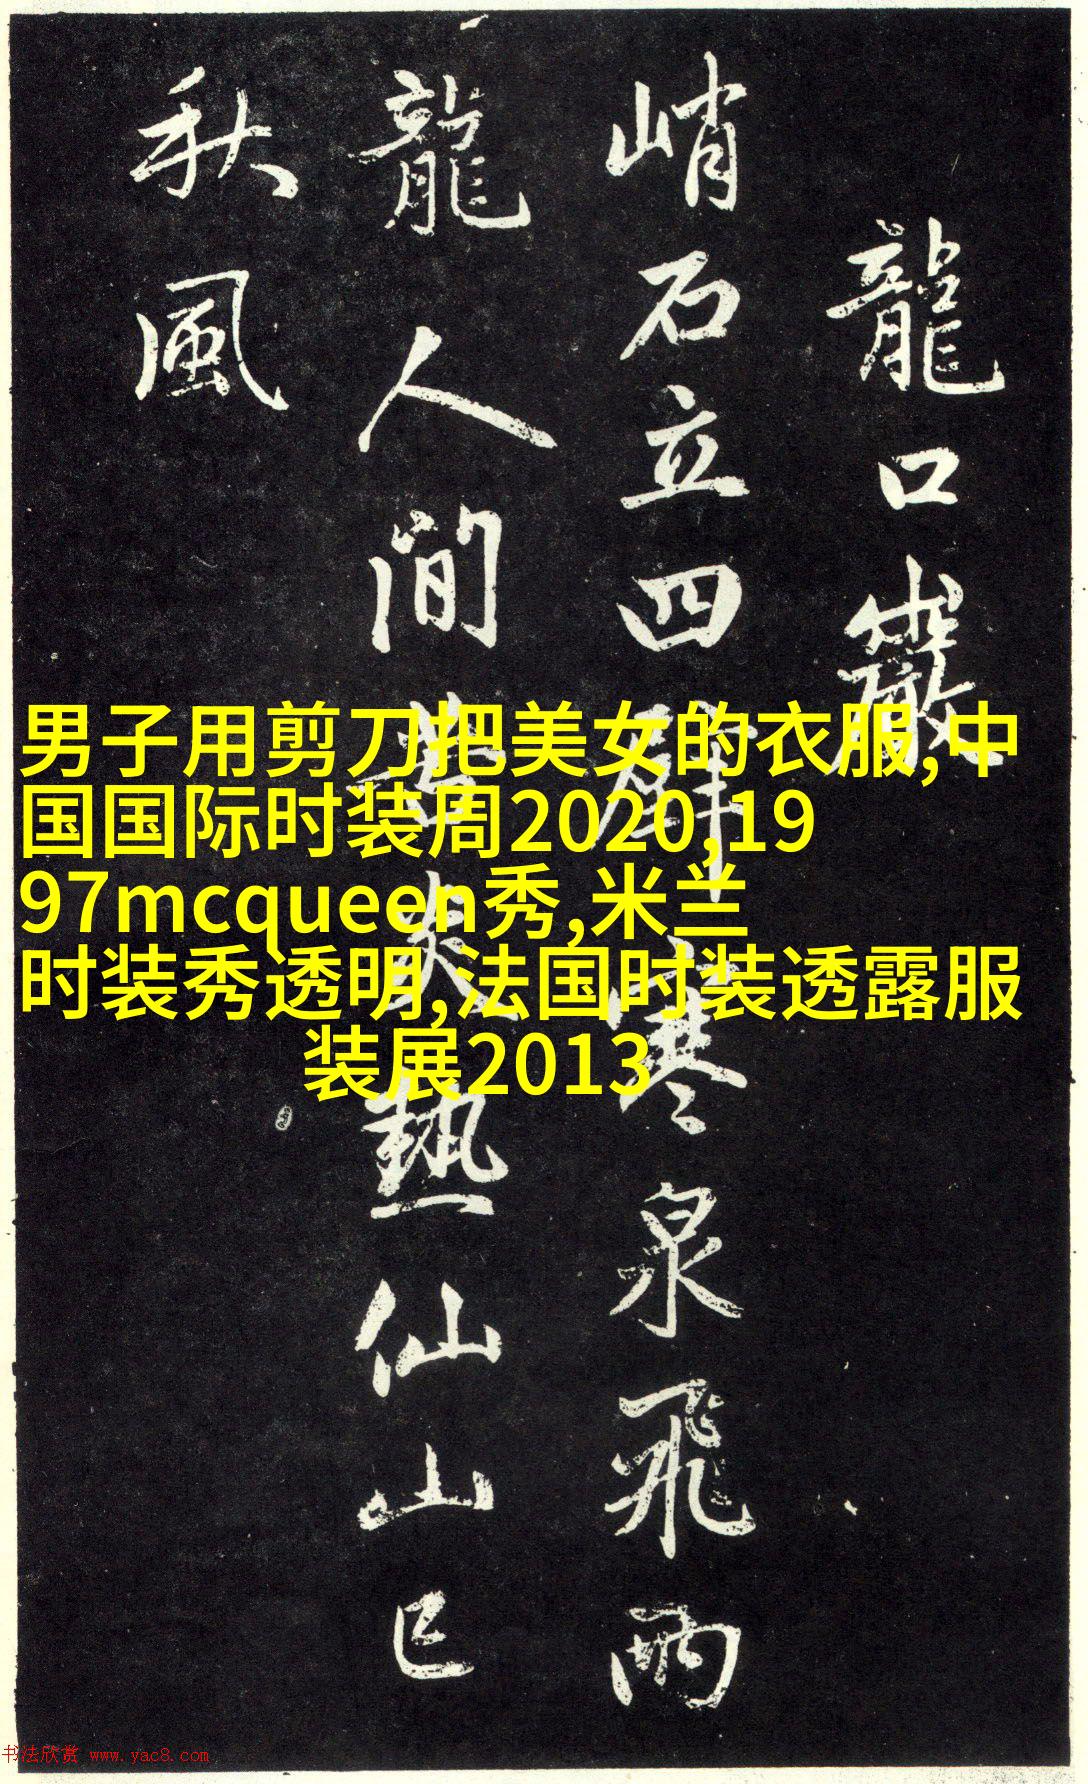 龍口巖
峭石立四壁寒泉飛雨
龍人間苦炎熱仙山已
秋風
男子用剪刀把美女的衣服,中
国国际时装周2020,19
97mcqueen秀,米兰
时装秀透明,法国时装透露服
装展2013
书法欣赏 www.yac8.com